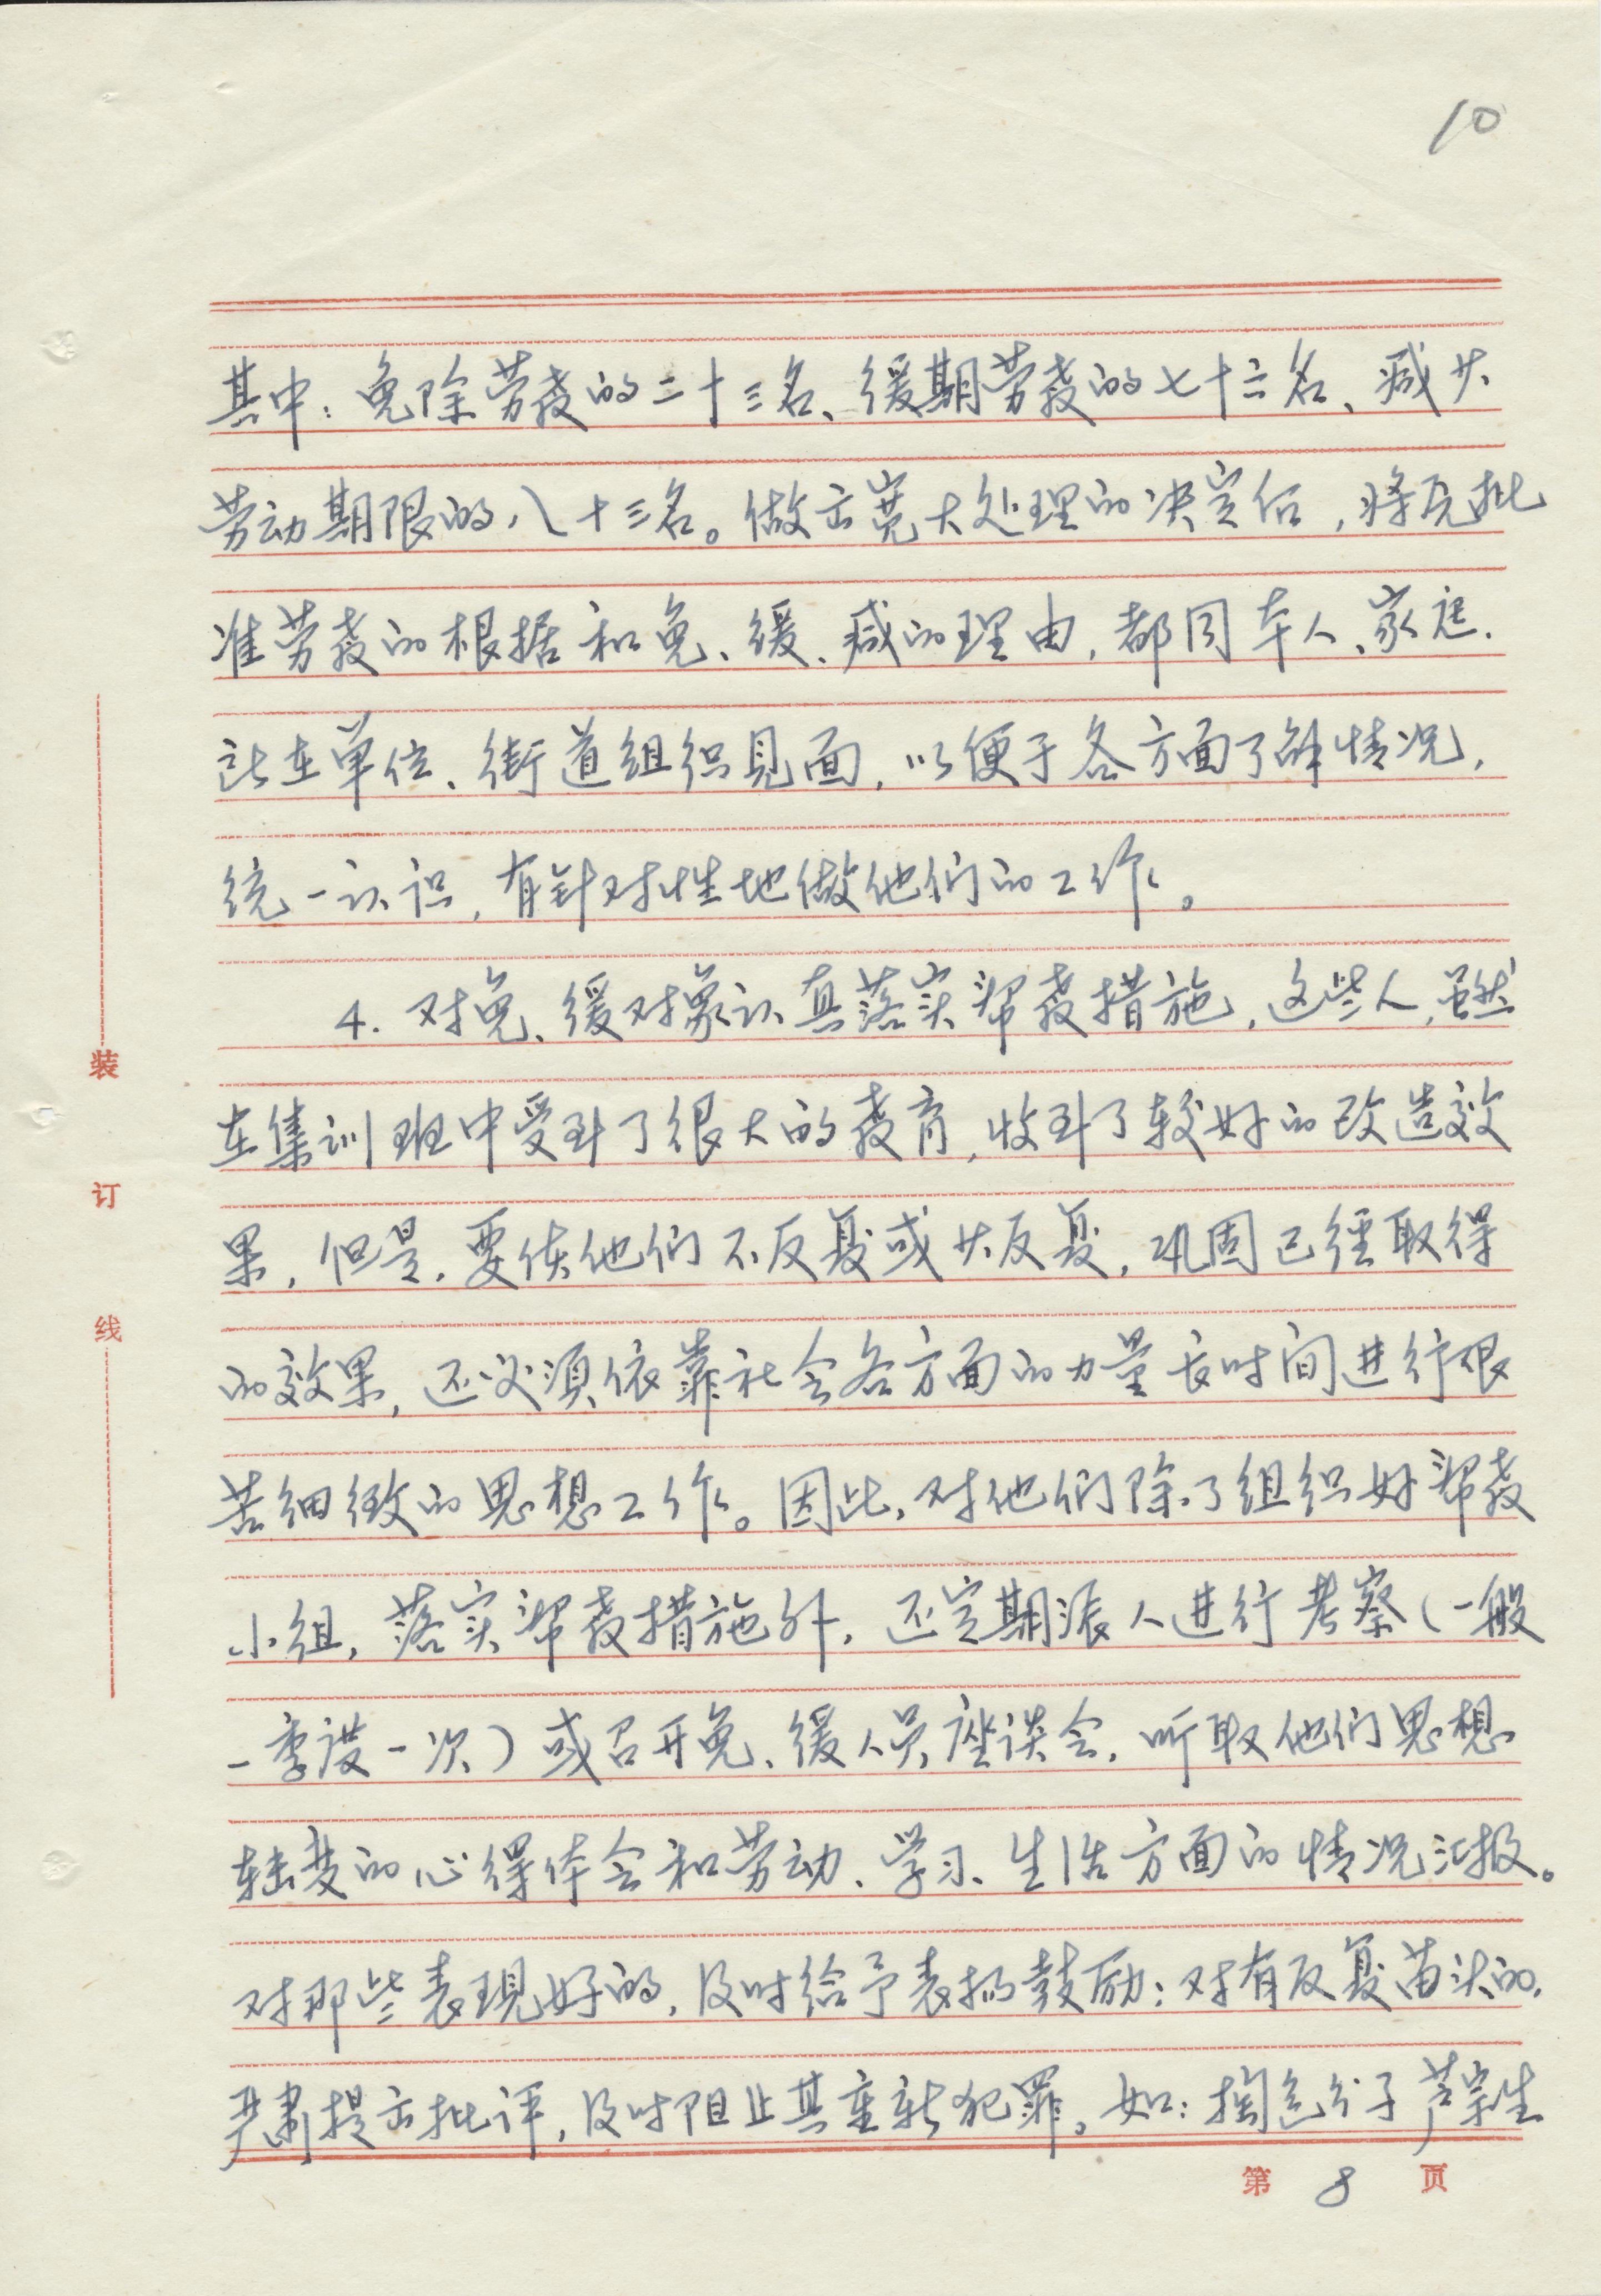 10
其中：免除劳教的二十三名、缓期劳教的七十六名、减少
劳动期限的八十三名。做出宽大处理的决定后，将原批
准劳教的根据和免、缓、减的理由，都同本人、家庭、
所在单位、街道组织见面，以便于各方面了解情况，
统一认识，有针对性地做他们的工作。
4. 对免、缓对象认真落实帮教措施，这些人，虽然
在集训班中受到了很大的教育，收到了较好的改造效
果，但是，要使他们不反复或少反复，巩固已经取得
的效果，还必须依靠社会各方面的力量长时间进行艰
苦细致的思想工作。因此，对他们除了组织好帮教
小组，落实帮教措施外，还定期派人进行考察（一般
一季度一次）或召开免、缓人员座谈会，听取他们思想
转变的心得体会和劳动、学习、生活方面的情况汇报。
对那些表现好的，及时给予表扬鼓励；对有反复苗头的，
严肃提出批评，及时阻止其重新犯罪。如：掏包分子芦宗生
第 8 页
装
订
线